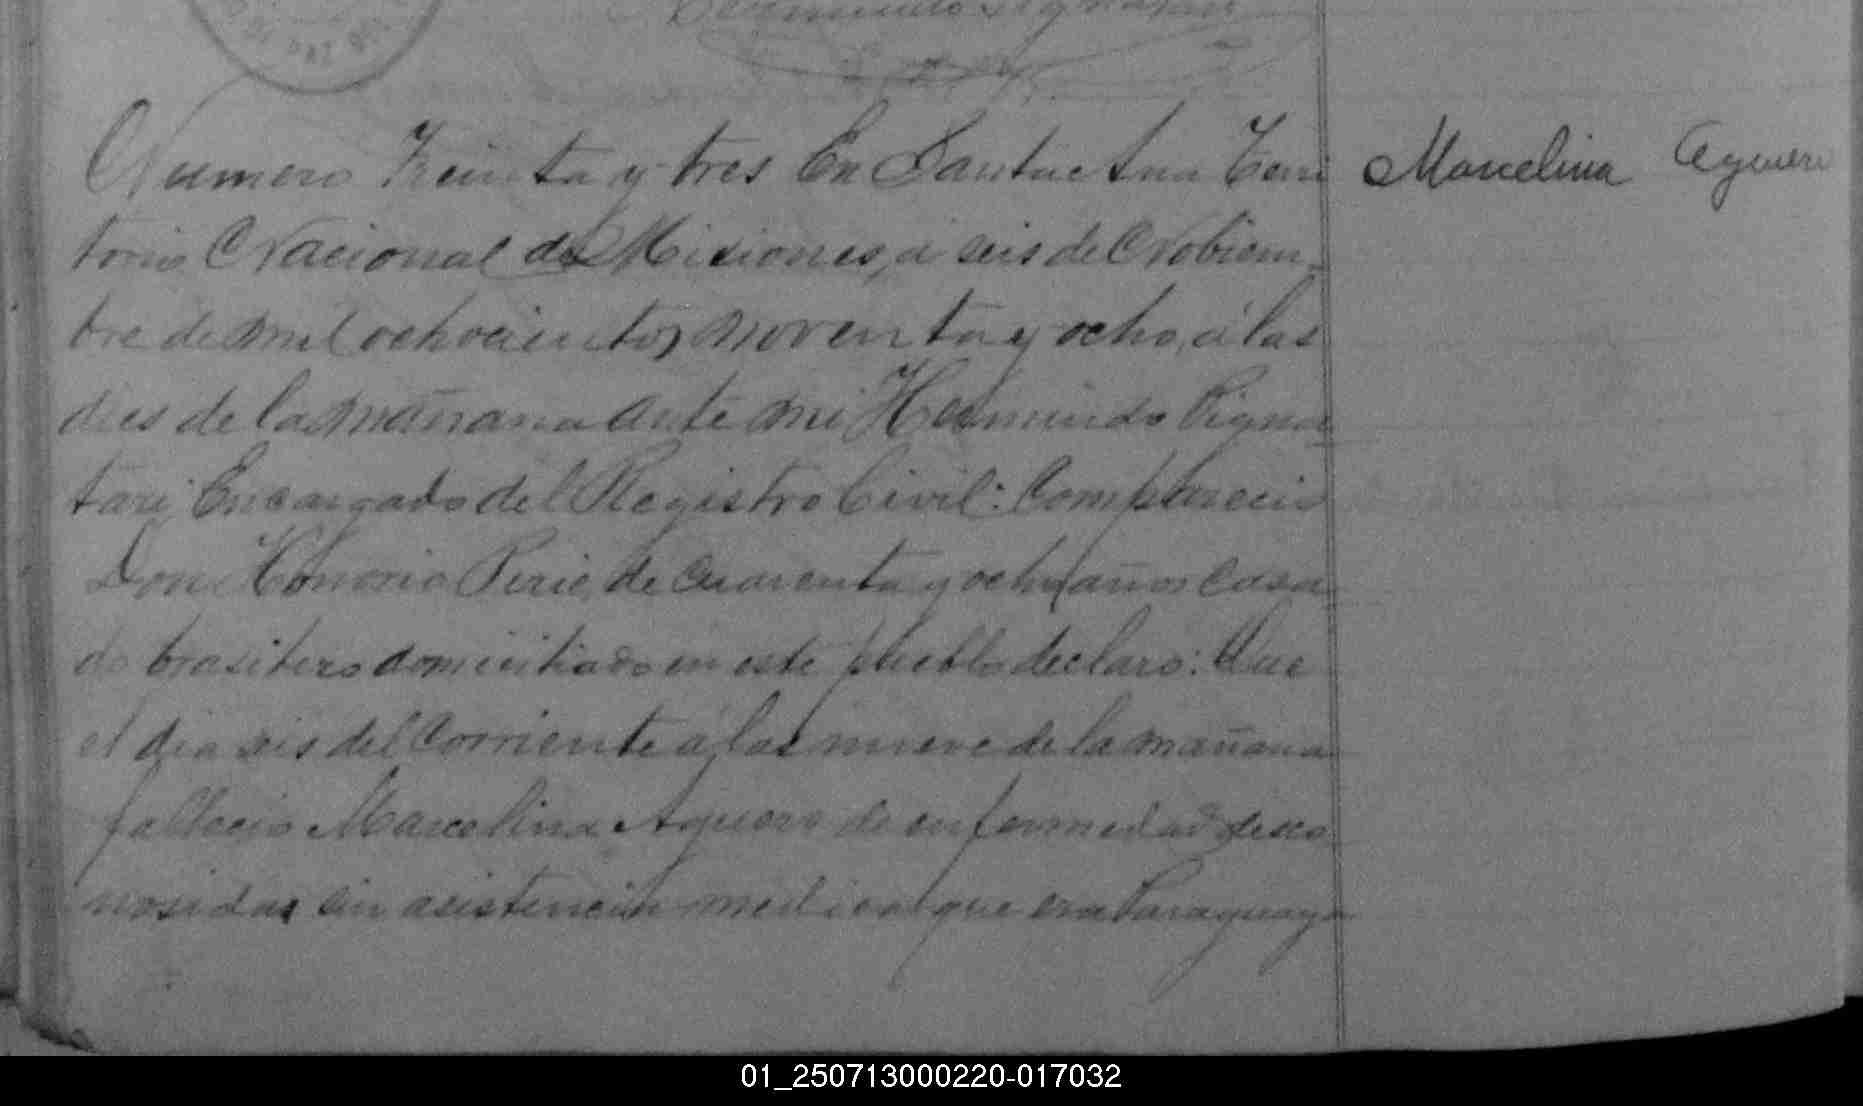 Numero Treinta y tres En Santa Ana Terri
torio Nacional de Misiones, a seis de Nobiem-
bre de mil ochocientos noventa y ocho, á las
dies de la mañana ante mi Hermindo Pigna-
tari Encargado del Registro Civil: Comparecio
Don Honorio Perie, de cuarenta y ocho años casa-
do brasilero domiciliado en este pueblo declaro: Que
el dia seis del corriente a las nueve de la mañana
fallecio Marcelina Aguero de enfermedad desco
nosidas sin asistencia medica que era Paraguaya
Marcelina Aguero
01_250713000220-017032